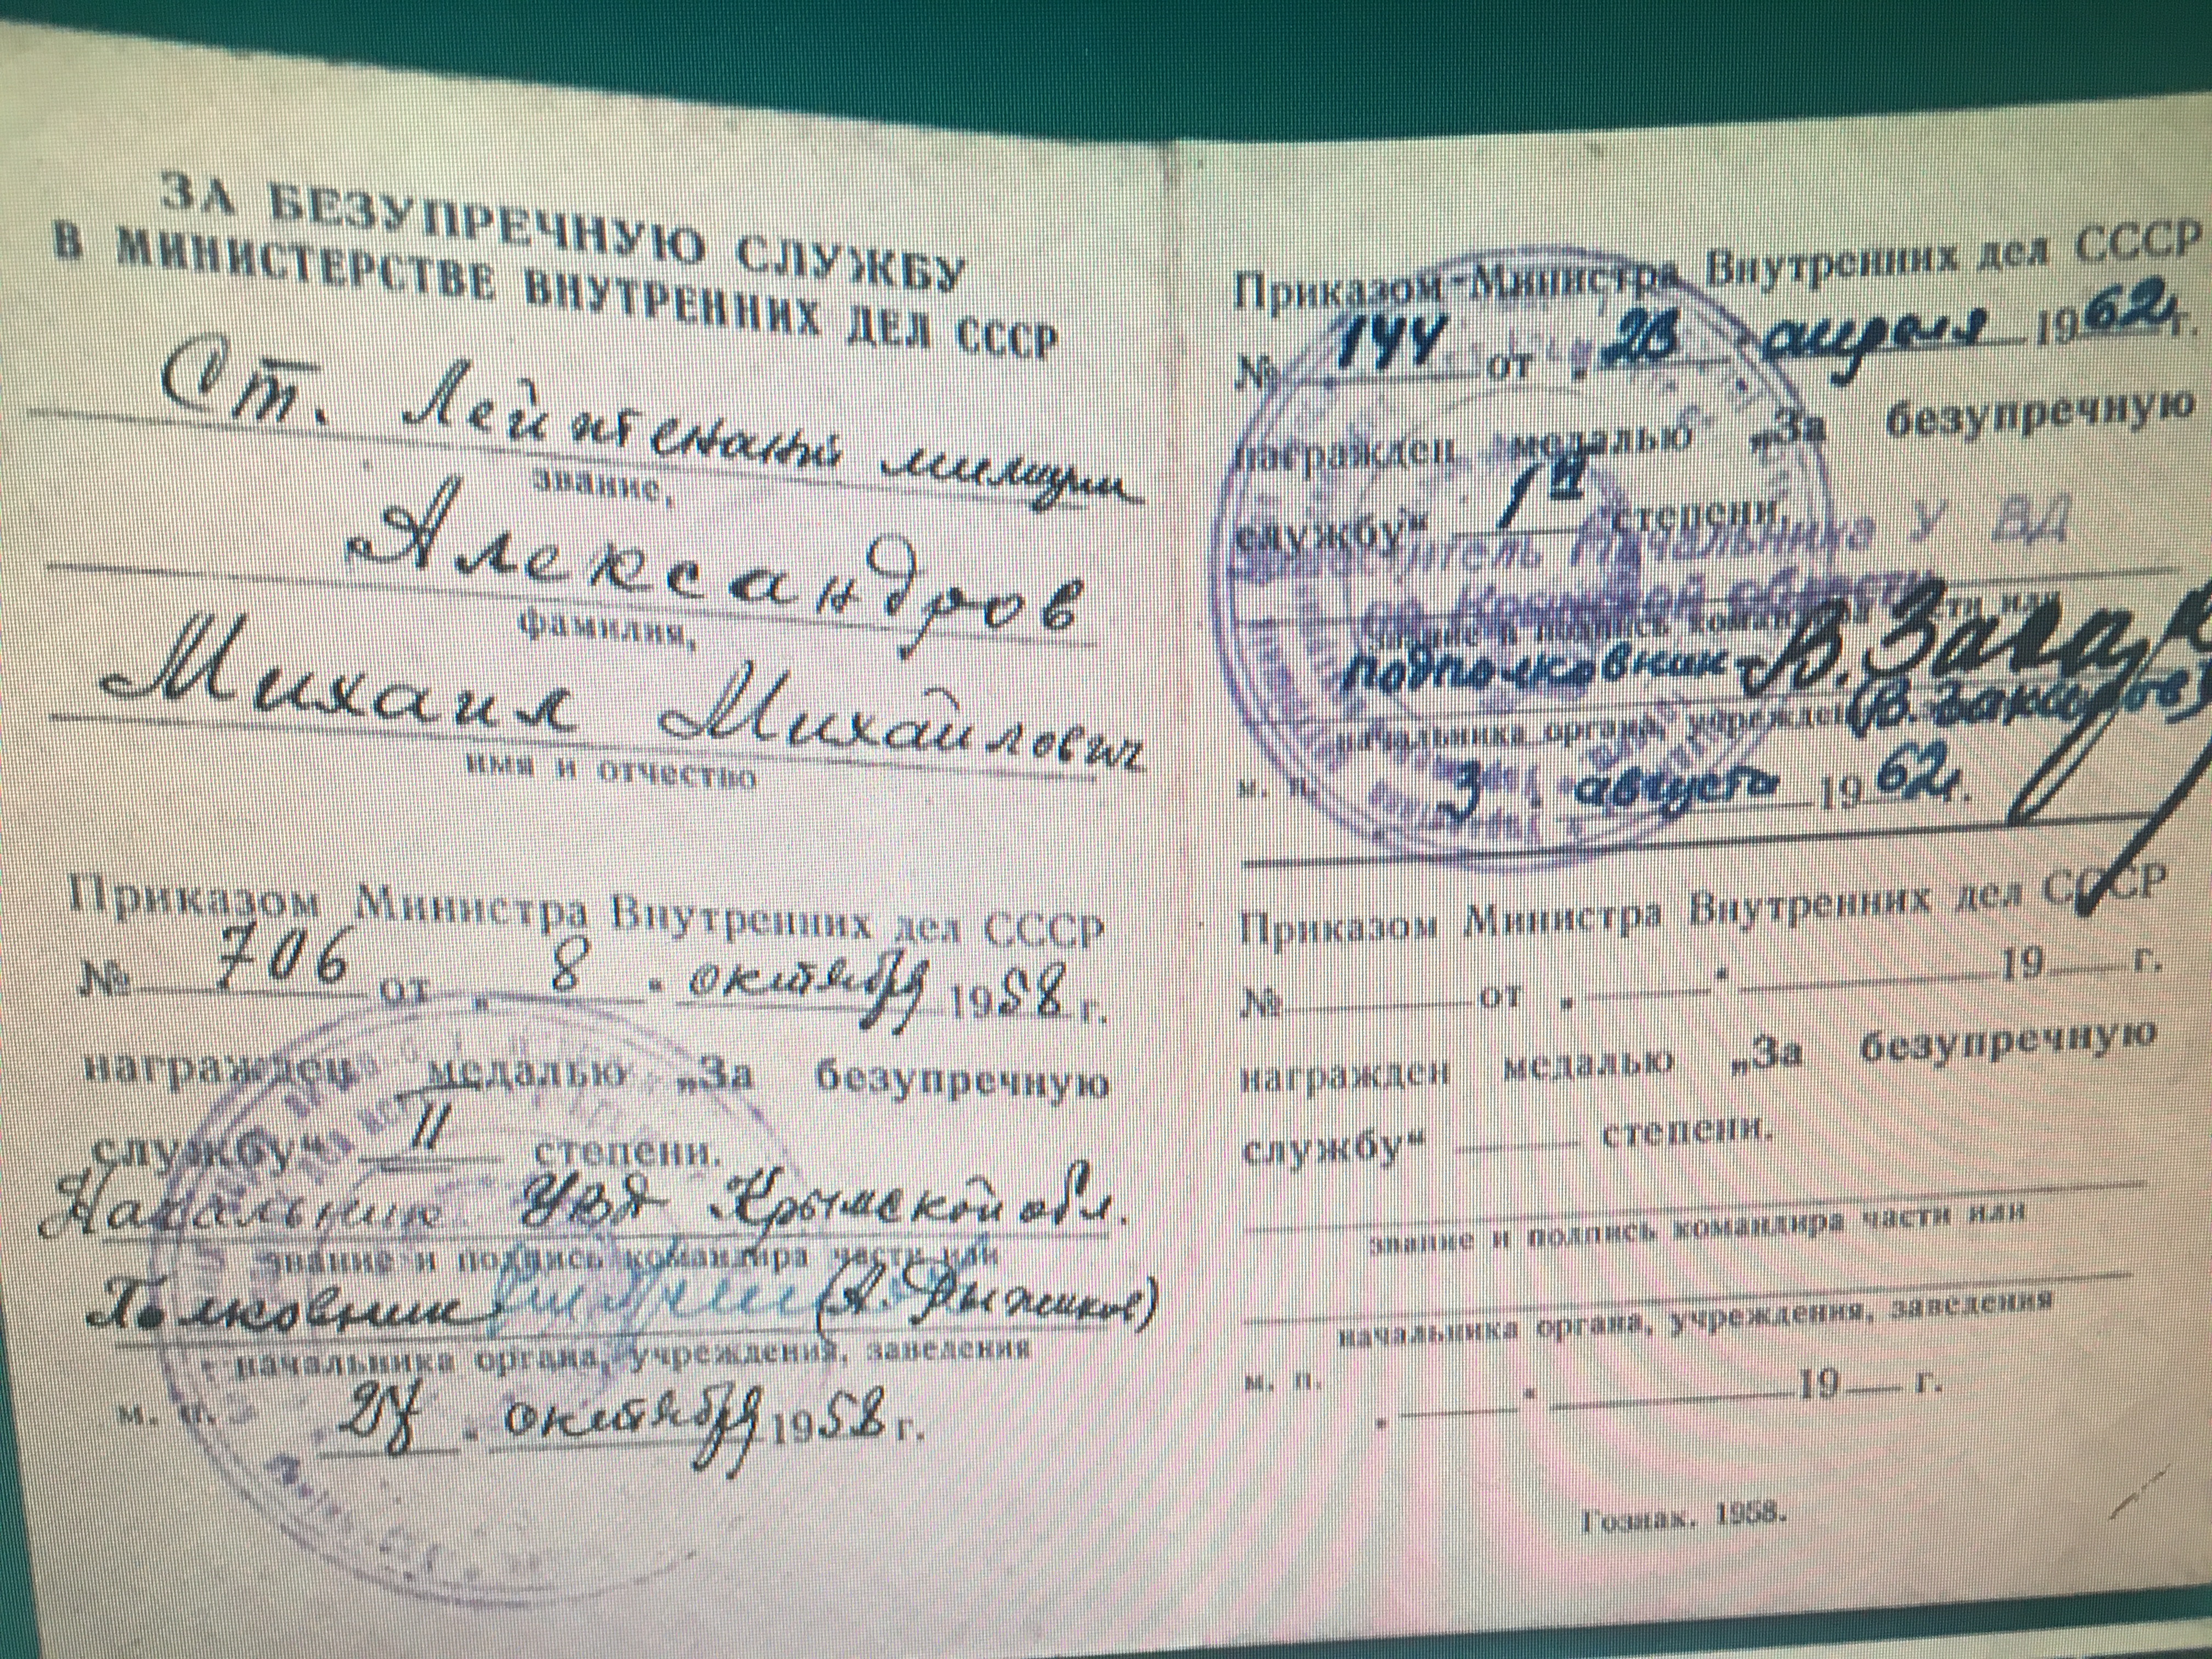 ЗА БЕЗУПРЕЧНУЮ СЛУЖБУ
В МИНИСТЕРСТВЕ ВНУТРЕННИХ ДЕЛ СССР
Ст. Лейтенант милиции
звание,
Александров
фамилия,
Михаил Михайлович
имя и отчество
Приказом Министра Внутренних дел СССР
№ 706 от „ 8 " октября 1958 г.
награжден медалью „За безупречную
службу“ II степени.
Начальник УВД Крымской обл.
звание и подпись командира части или
Полковник (А. Рыжиков)
начальника органа, учреждения, заведения
м. п. октября 1958 г.
Приказом Министра Внутренних дел СССР
№ 144 от „ 23 " апреля 1962 г.
награжден медалью „За безупречную
службу“ I степени.
Начальника УВД
области
звание и подпись командира части или
подполковник
начальника органа, учреждения
м. п. 3 августа 1962 г.
Приказом Министра Внутренних дел СССР
№ от „ " 19 г.
награжден медалью „За безупречную
службу“ степени.
звание и подпись командира части или
начальника органа, учреждения, заведения
м. п. „ " 19 г.
Гознак. 1958.